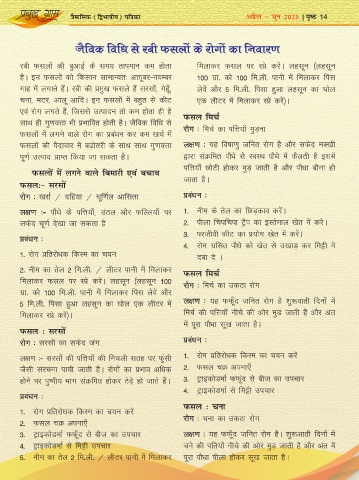 प्रबुद्ध ग्राम
त्रैमासिक ( द्विभाषीय ) पत्रिका
अप्रैल - जून 2023 | पृष्ठ 14
जैविक विधि से रबी फसलों के रोगों का निवारण
रबी फसलों की बुआई के समय तापमान कम होता
है। इन फसलों को किसान सामान्यतः अक्तूबर-नवम्बर
माह में लगाते हैं। रबी की प्रमुख फसलें हैं सरसों, गेहूँ,
चना, मटर, आलू आदि। इन फसलों में बहुत से कीट
एवं रोग लगते हैं, जिससे उत्पादन तो कम होता ही है
साथ ही गुणवत्ता भी प्रभावित होती है। जैविक विधि से
फसलों में लगने वाले रोग का प्रबंधन कर कम खर्च में
फसलों की पैदावार में बढ़ोतरी के साथ साथ गुणवत्ता
पूर्ण उत्पाद प्राप्त किया जा सकता है।
फसलों में लगने वाले बिमारी एवं बचाव
फसल:- सरसों
रोग : खर्रा / दहिया / चूर्णिल आसिता
लक्षण :- पौधे के पत्तियों, डंठल और फल्लियों पर
सफेद चूर्ण देखा जा सकता है
प्रबंधन :
1. रोग प्रतिरोधक किस्म का चयन
2. नीम का तेल 2 मि.ली. / लीटर पानी में मिलाकर
मिलाकर फसल पर स्प्रे करें। लहसून (लहसून 100
ग्रा. को 100 मि.ली. पानी में मिलाकर पिस लेवें और
5 मि.ली. पिसा हुआ लहसून का घोल एक लीटर में
मिलाकर स्प्रे करें)।
फसल : सरसों
रोग : सरसों का सफेद जंग
लक्षण :- सरसों की पत्तियों की निचली सतह पर फुंसी
जैसी संरचना पायी जाती है। रोगों का प्रभाव अधिक
होने पर पुष्पीय भाग संक्रमित होकर टेढ़े हो जाते हैं।
प्रबंधन :
1. रोग प्रतिरोधक किस्म का चयन करें
2. फसल चक्र अपनाएँ
3. ट्राइकोडर्मा फफूंद से बीज का उपचार
4. ट्राइकोडर्मा से मिट्टी उपचार
5. नीम का तेल 2 मि.ली. / लीटर पानी में मिलाकर
मिलाकर फसल पर स्प्रे करें। लहसून (लहसून
100 ग्रा. को 100 मि.ली. पानी में मिलाकर पिस
लेवें और 5 मि.ली. पिसा हुआ लहसून का घोल
एक लीटर में मिलाकर स्प्रे करें)।
फसल मिर्च
रोग : मिर्च का पत्तियों मुड़ना
लक्षण : यह विषाणु जनित रोग है और सफेद मक्खी
द्वारा संक्रमित पौधे से स्वस्थ पौधे में फैलती है इसमें
पत्तियाँ छोटी होकर मुड़ जाती हैं और पौधा बौना हो
जाता है।
प्रबंधन :
1. नीम के तेल का छिड़काव करें।
2. पीला चिपचिपा ट्रैप का इस्तेमाल खेत में करें।
3. परजीवी कीट का प्रयोग खेत में करें।
4. रोग ग्रसित पौधे को खेत से उखाड़ कर मिट्टी में
दबा दे ।
फसल मिर्च
रोग : मिर्च का उकठा रोग
लक्षण : यह फफूँद जनित रोग है शुरूवाती दिनों में
मिर्च की पत्तियाँ नीचे की ओर मुड़ जाती हैं और अंत
में पूरा पौधा सूख जाता है।
प्रबंधन :
1. रोग प्रतिरोधक किस्म का चयन करें
2. फसल चक्र अपनाएँ
3. ट्राइकोडर्मा फफूंद से बीज का उपचार
4. ट्राइकोडर्मा से मिट्टी उपचार
फसल : चना
रोग : चना का उकठा रोग
लक्षण : यह फफूँद जनित रोग है। शुरुआती दिनों में
चने की पत्तियाँ नीचे की ओर मुड़ जाती है और अंत में
पूरा पौधा पीला होकर सूख जाता है।